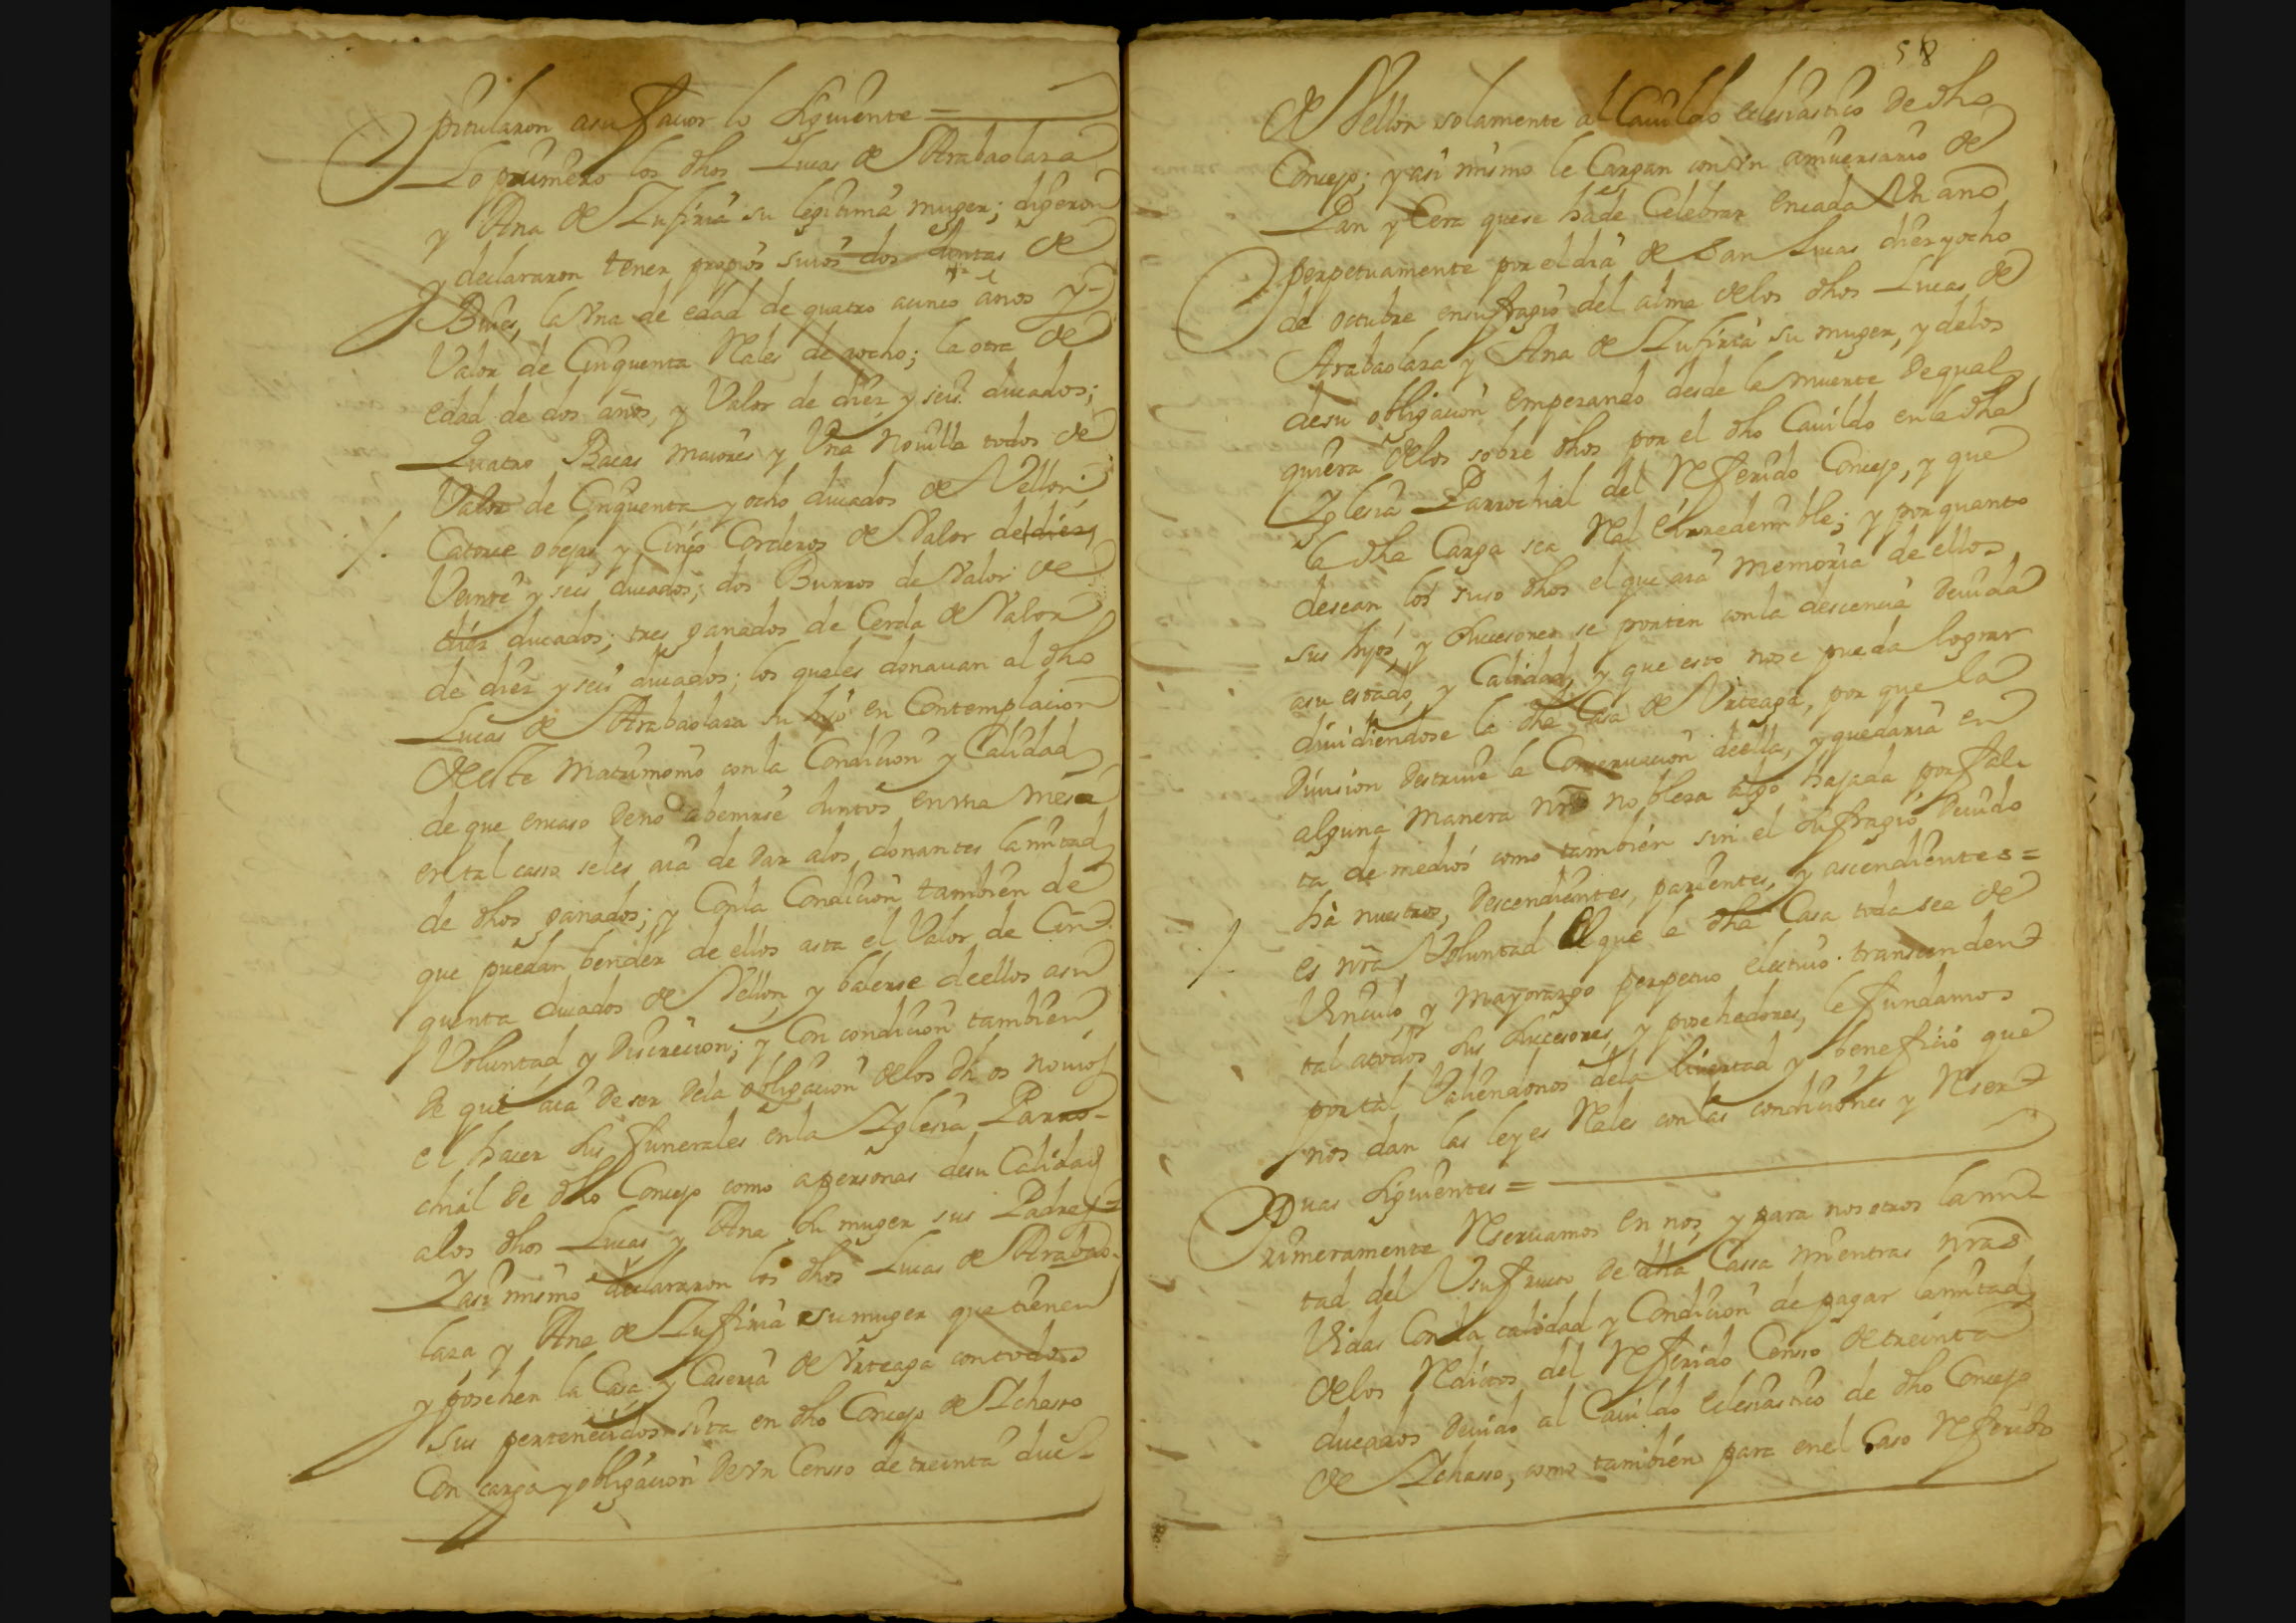 pitularon asu favor lo siguiente =
Lo primero los dhos Lucas de Arabaolaza
y Ana de Zufiria su legitima muger; digeron
y declararon tener propios suios dos Juntas de
Bues, la Vna de edad de quatro acinco años y
Valor de Cinquenta Rales de aocho; la otra de
edad de dos años, y Valor de diez y seis ducados;
Quatro Bacas maiores y Vna Novilla todos de
Valor de Cinquenta y ocho ducados de Vellon
Catorce obejas, y Cinco Corderos de Valor de diez
Veinte y seis ducados; dos Burros de Valor de
diez ducados; tres ganados de Cerda de Valor
de diez y seis ducados; los quales donauan al dho
Lucas de Arabaolaza su hijo en Contemplacion
de este Matrimonio con la Condicion y Calidad
de que encaso deno abenirse Juntos envna mesa
en tal casso seles aia de dar alos donantes la mitad
de dhos ganados; y Con la Condicion tambien de
que puedan bender de ellos asta el Valor de Cin
quenta ducados de Vellon, y balerse de ellos asu
Voluntad y discrecion; y Con condicion tambien
de que aia de ser dela obligacion de los dhos novios
el hacer sus funerales en la Iglesia Parro-
chial de dho Concejo como a personas de su Calidad
alos dhos Lucas y Ana su muger sus Padres
Y asi mismo declararon los dhos Lucas de Arabao-
laza y Ana de Zufiria su muger que tienen
y posehen la Casa y Caseria de Vrteaga con todos
sus pertenecidos sita en dho Concejo de Ichasso
Con carga y obligacion de vn Censso de treinta duc-
58
de Vellon solamente al Cauildo eclesiastico de dho
Concejo; y asi mismo le Cargan con vn aniuersario de
Pan y Cera que se ha de Celebrar en cada Vn año
perpetuamente por el dia de San Lucas diez y ocho
de octubre en sufragio del alma de los dhos Lucas de
Arabaolaza y Ana de Zufiria su muger, y de los
de su obligacion empezando desde la muerte de qual
quiera de los sobre dhos por el dho Cauildo en la dha
Iglesia Parrochial del Referido Concejo, y que
la dha Carga sea Real e irredemible; y por quanto
desean los suso dhos el que aia memoria de ellos
sus hijos, y Successores se porten con la descencia deuida
asu estado, y Calidad, y que esto nose pueda lograr
diuidiendose la dha Casa de Vrteaga, por que la
diuision destruie la Conseruacion de ella, y quedaria en
alguna manera nra nobleza algo bajada por fal-
ta de medios como tambien sin el sufragio deuido
ha nuestros, descendientes, parientes, y ascendientes =
es nra Voluntad el que la dha Casa toda sea de
Vinculo y Mayorazgo perpetuo electiuo transcenden
tal atodos sus Successores, y posehedores, le fundamos
por tal Valiendonos dela livertad y beneficio que
nos dan las leyes Rales con las condiciones y Reser
uas siguientes =
Primeramente Reseruamos en nos, y para nosotros la mi-
tad del Vsufructo de dha Cassa mientras nras
Vidas Con la calidad y Condicion de pagar la mitad
de los Reditos del Referido Censso de treinta
ducados deuido al Cauildo eclesiastico de dho Concejo
de Ichasso, como tambien para en el Caso Referido